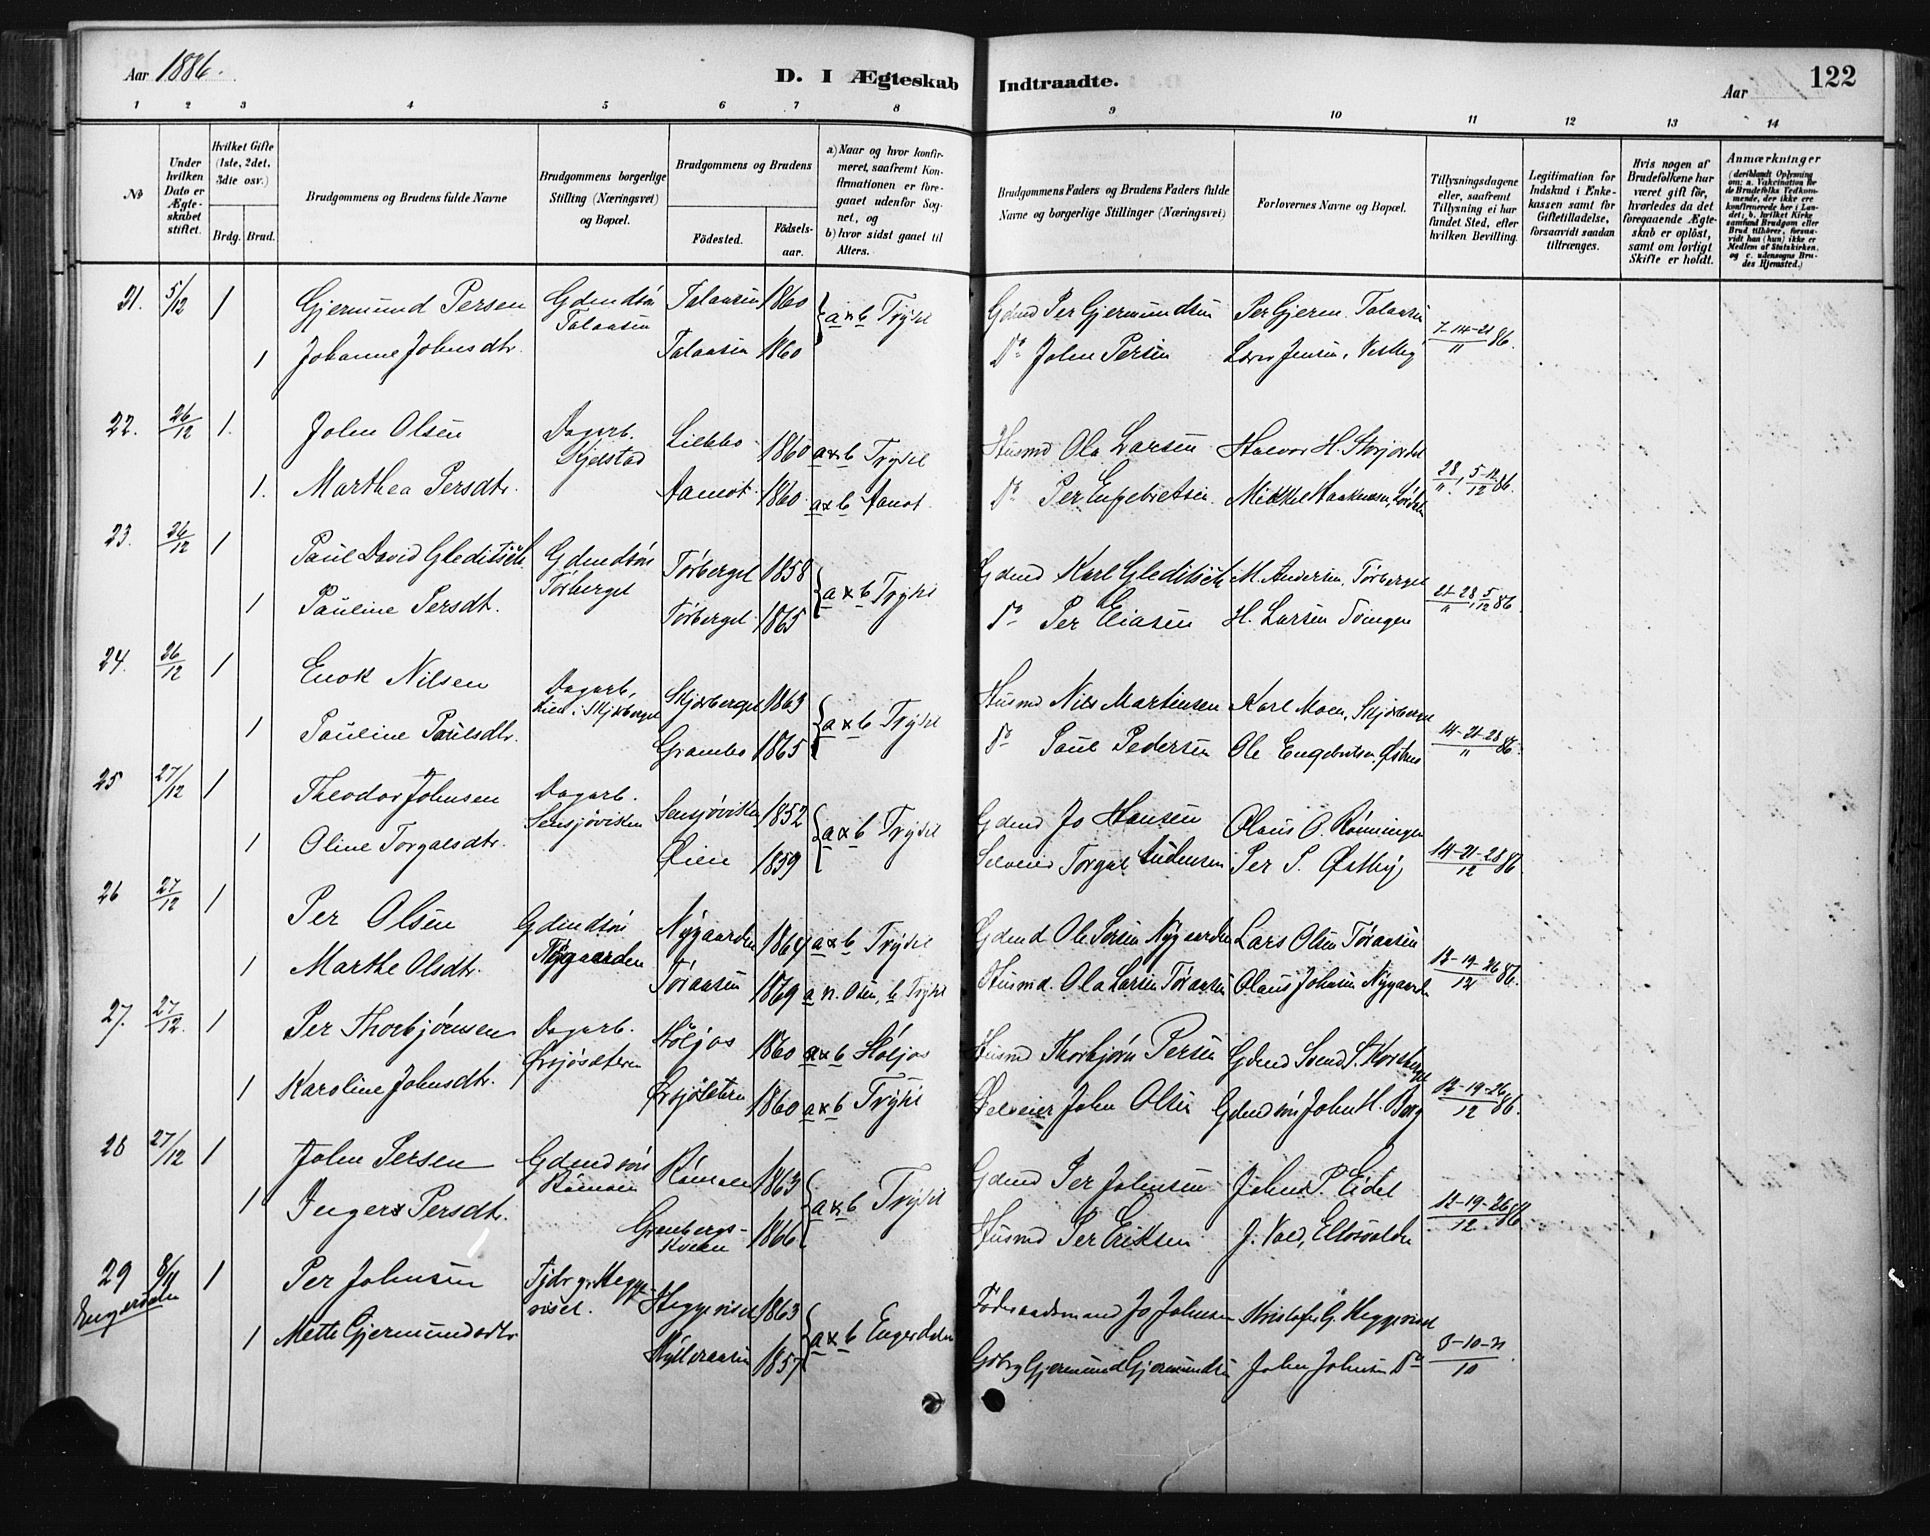 Aar 1886.
D. I Ægteskab Indtraadte.
Aar
122
1 2 3 4 5 6 7 8 9 10 11 12 13 14
No
Under hvilken Dato er Ægteskabet stiftet.
Hvilket Gifte (1ste, 2det, 3die osv.)
Brdg. Brud.
Brudgommens og Brudens fulde Navne
Brudgommens borgerlige Stilling (Næringsvei) og Bopæl.
Brudgommens og Brudens
Fødested.
Fødselsaar.
a) Naar og hvor konfirmeret, saafremt Konfirmationen er foregaaet udenfor Sognet, og
b) hvor sidst gaaet til Alters.
Brudgommens Faders og Brudens Faders fulde Navne og borgerlige Stillinger (Næringsvei)
Forlovernes Navne og Bopæl.
Tillysningsdagene eller, saafremt Tillysning ei har fundet Sted, efter hvilken Bevilling.
Legitimation for Indskud i Enkekassen samt for Giftetilladelse, forsaavidt saadan tiltrænges.
Hvis nogen af Brudefolkene har været gift før, hvorledes da det foregaaende Ægteskab er opløst, samt om lovligt Skifte er holdt.
Anmærkninger (deriblandt Oplysning om: a. Vakcination for de Brudefolks Vedkommende, der ikke ere konfirmerede her i Landet; b. hvilket Kirkesamfund Brudgom eller Brud tilhører, forsaavidt han (hun) ikke er Medlem af Statskirken, og c. udensogns Brudes Hjemsted.)
21. 5/12 1 Gjermund Persen Gdmdsön Talaasen Talaasen 1860 a & b Trysil Gdmd Per Gjermundsen Per Gjerm. Talaasen 7-14-21/11 86.
1 Johanne Johnsdtr. Talaasen 1860 Do John Persen Jensen, Vestby
22. 26/12 1. John Olsen Dagarb. Skjelstad Liebbo 1860 a & b Trysil Husmd Ola Larsen Halvor H. Storjordet 28/11, 5-12/12 86.
1. Marthea Persdtr. Aamot 1860 a & b Aamot. Do Per Engebretsen Mikkel Haakensen,
23. 26/12 1 Paul David Gleditsch Gdmdsön Törberget Törberget 1858 a & b Trysil Gdmd Karl Gleditsch M. Andersen, Törberget 21-28/11, 5/12 86
1 Pauline Persdt. Törberget 1865 Do Per Eliasen H. Larsen Svingen
24. 26/12 1 Enok Nilsen Dagarb. Skjærberget Skjærberget 1863 a & b Trysil Husmd Nils Martinsen Karl Moen, Skjærberget 14-21-28/11 86.
1 Pauline Paulsdtr. Grambo 1865 Do Paul Pedersen Ole Engebretsen, Östmo
25 27/12 1 Theodor Johnsen Dagarb. Sensjövisten Sensjövisten 1852 a & b Trysil Gdmd Jo Hansen Olaus O. Rönningen 14-21-28/12 86
1 Oline Torgalsdtr. Öien 1859 Selveier Torgal Andersen Per P. Östby,
26 27/12 1 Per Olsen Gdmdsön Nygaarden Nygaarden 1864 a & b Trysil Gdmd Ole Persen Nygaarden Lars Olsen Töraasen 12-19-26/12 86.
1 Marthe Olsdtr. Töraasen 1869 a n. Osen, b Trysil Husmd. Ola Larsen Töraasen Olaus Johnsen Nygaarden
27. 27/12. 1 Per Thorbjörnsen Dagarb. Örsjösæteren Höljos 1860 a & b Höljos Husmd Thorbjörn Persen Gdmd Svend S. Korsberget 12-19-26/12 86.
1 Karoline Johnsdtr. Örsjösetern 1860 a & b Trysil Selveier John Olsen Gdmdsön John H. Berg
28 27/12 1 John Persen Gdmdsön Römoen Römoen 1863 a & b Trysil Gdmd Per Johnsen John P. Eidet 12-19-26/12 86
1 Inger Persdtr. Grønbergskveen 1866 Husmd Per Eriksen J. Vold, Eltosvolden
29 8/11 1 Per Johnsen Heggeriset. Heggeriset 1863 a & b Engerdalen Föderaadsmand Jo Johnsen Kristofer G. Heggeriset 3-10-31/10
Engerdalen
1 Mette Gjermundsdtr. Hylleraasen 1857 Gdbrg Gjermund Gjermundsen John Johnsen Do